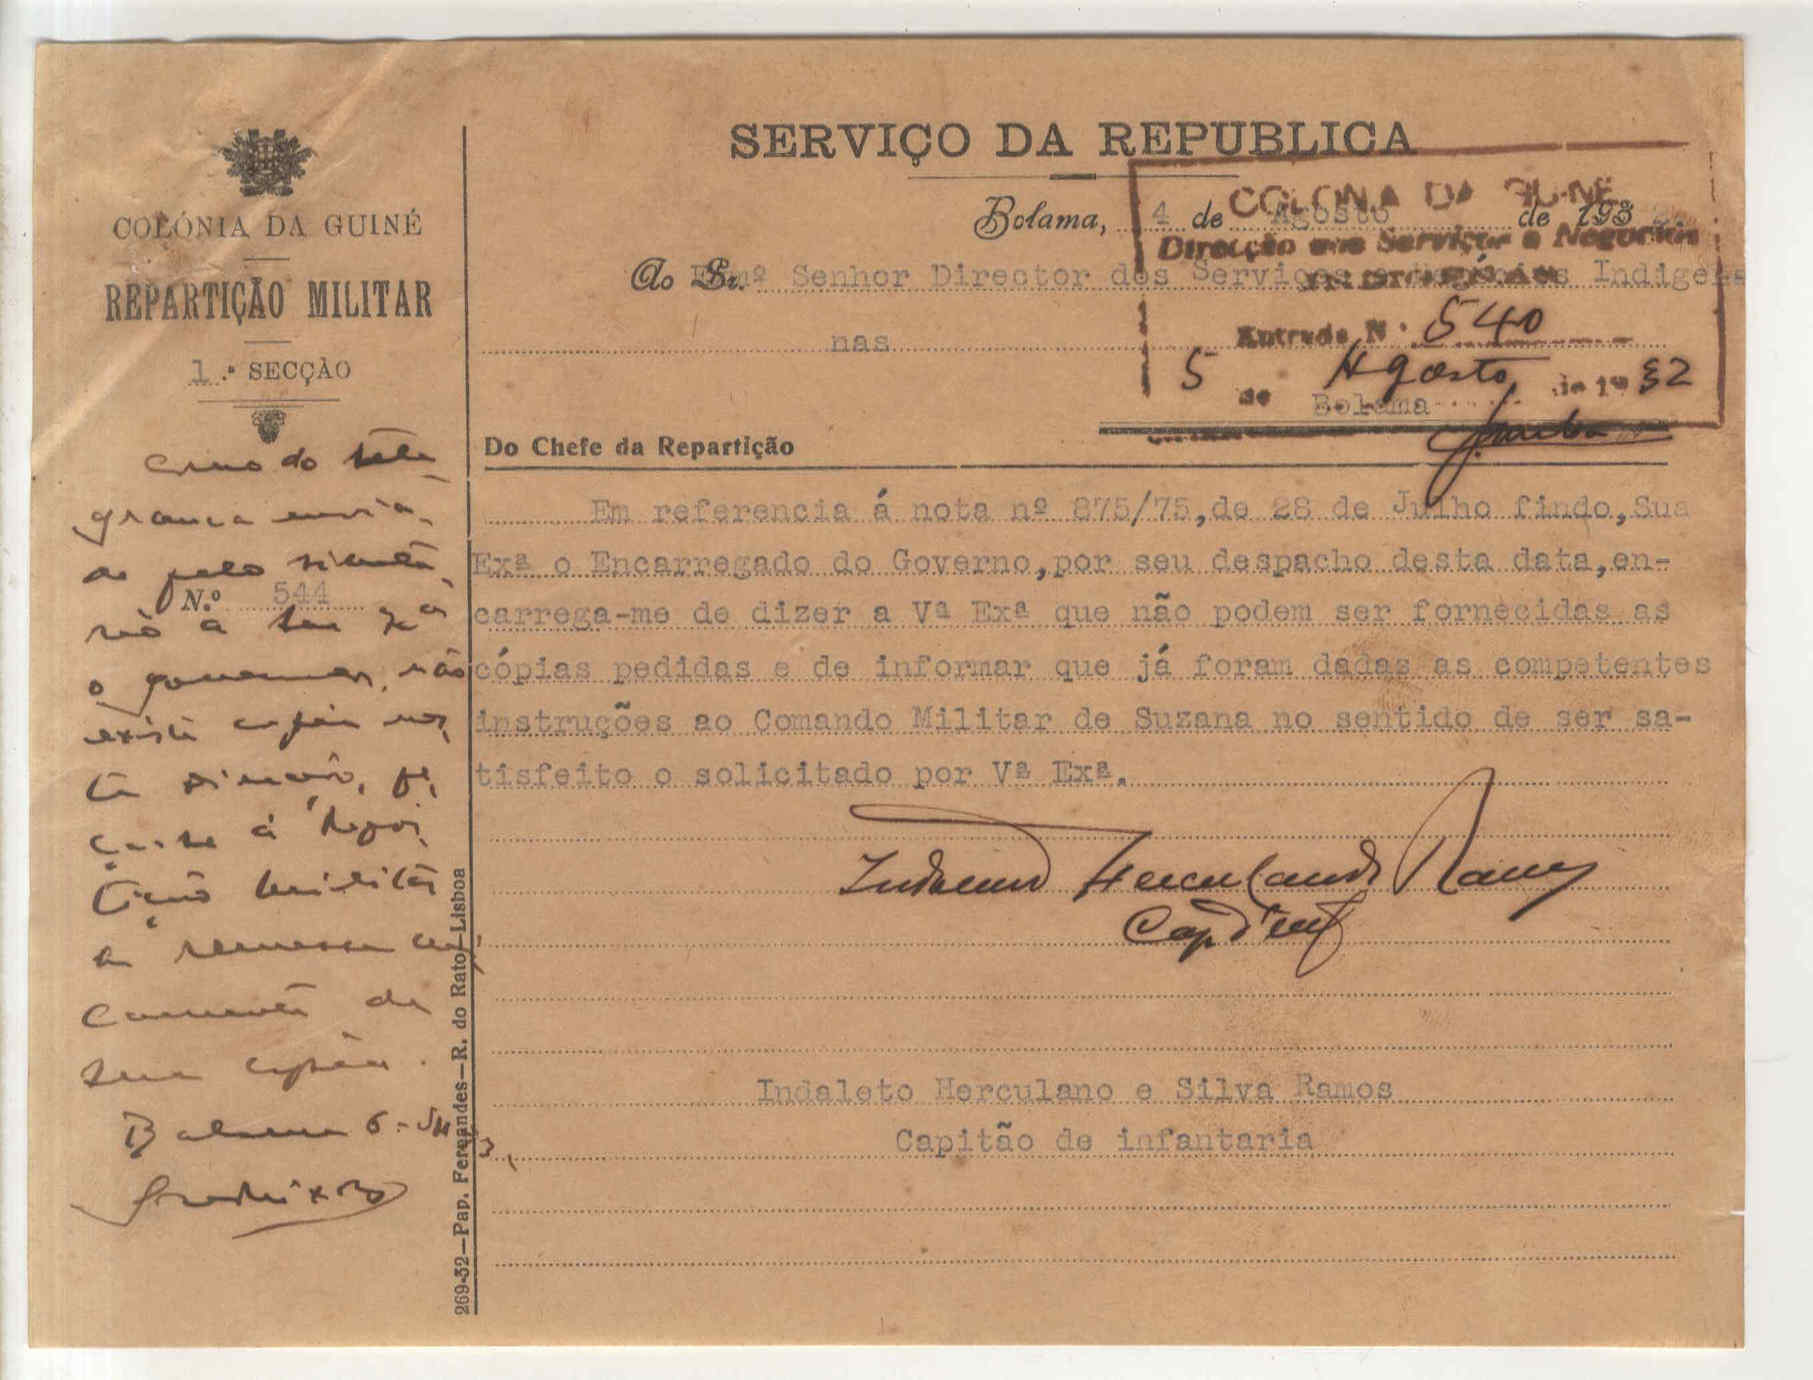 SERVIÇO DA REPUBLICA
COLÓNIA DA GUINÉ
REPARTIÇÃO MILITAR
1.ª SECÇÃO
Nº 544
Bolama, 4 de Agosto de 193
Ao Sr. Exmº Senhor Director dos Serviços e Negócios Indige-
nas
Bolama
COLONIA DA GUINÉ
Direcção dos Serviços e Negocios
Indigenas
Entrada N.º 540
5 de Agosto de 1932
Do Chefe da Repartição
Em referencia á nota nº 875/75,de 28 de Julho findo,Sua
Exª o Encarregado do Governo,por seu despacho desta data,en-
carrega-me de dizer a Vª Exª que não podem ser fornecidas as
cópias pedidas e de informar que já foram dadas as competentes
instruções ao Comando Militar de Suzana no sentido de ser sa-
tisfeito o solicitado por Vª Exª.
Indaleto Herculano Ramos
Cap. d'inf
Indaleto Herculano e Silva Ramos
Capitão de infantaria
do tele
grama envia
do pelo
rio a Sua Exª
o governador, não
existe copia nes
ta direcção, pe
ça-se á Repar
tição militar
a remessa
de
sua copia.
Bolama 6-
269-32—Pap. Fernandes—R. do Rato—Lisboa